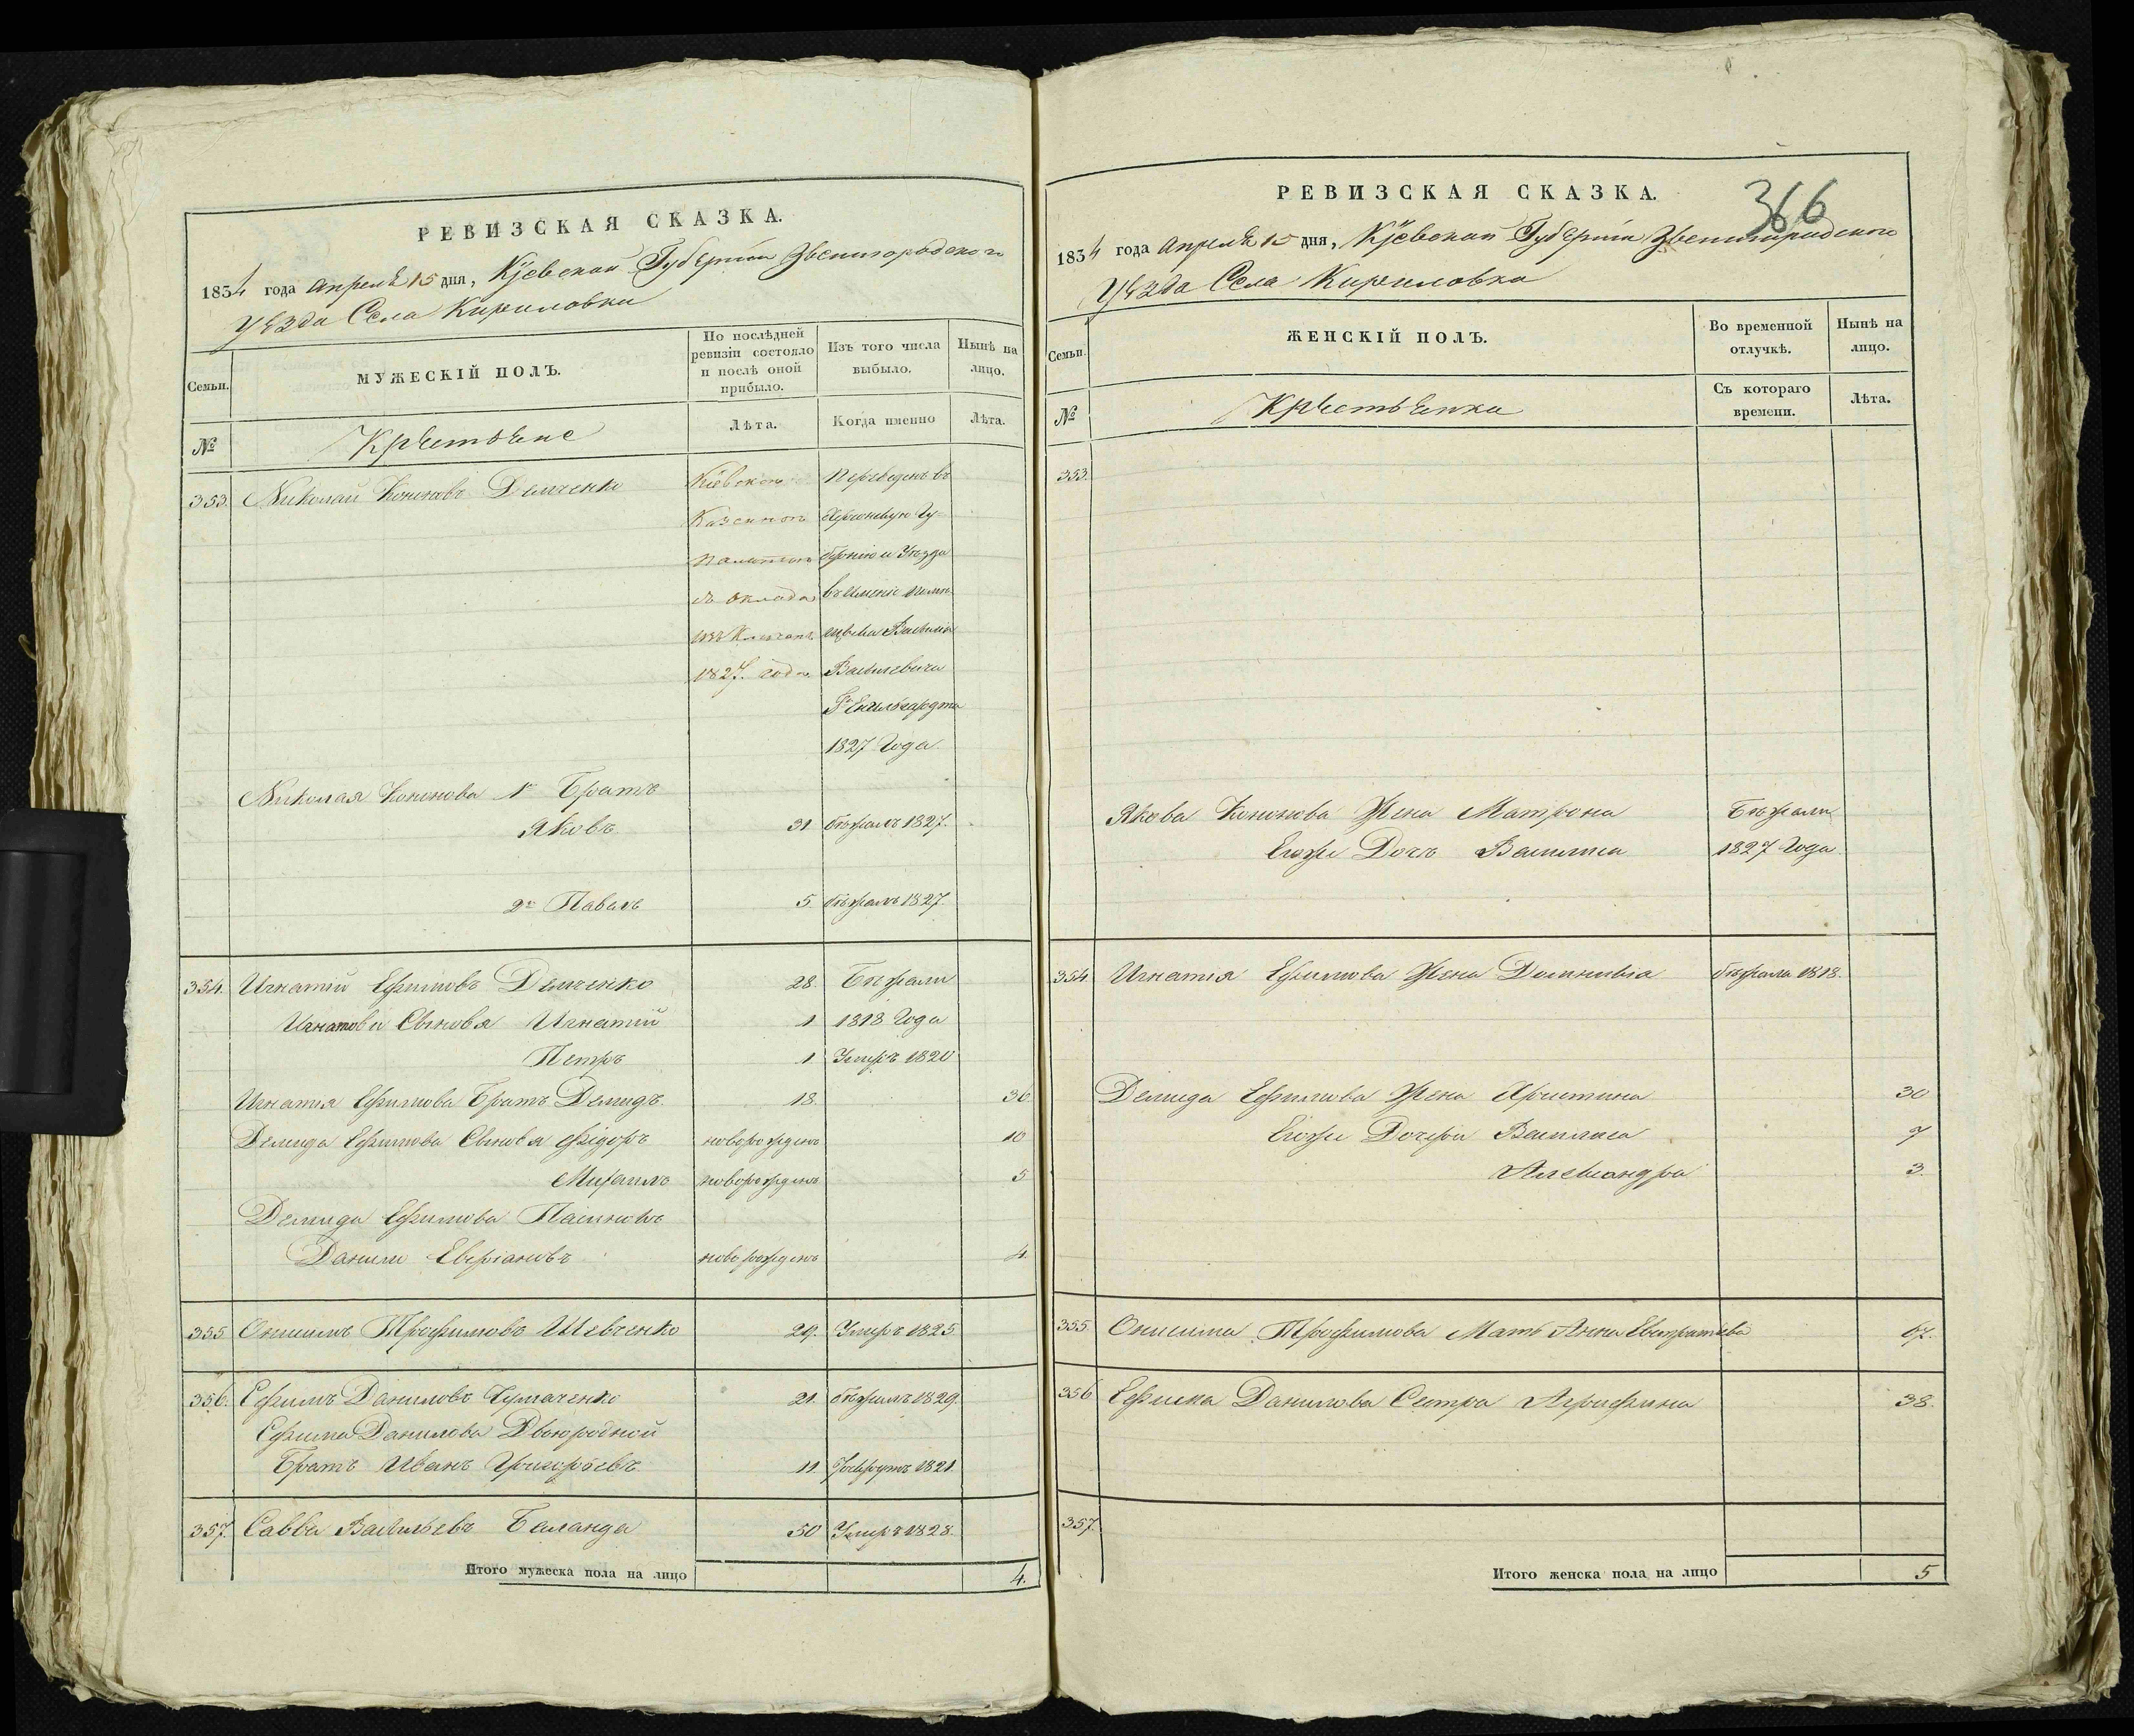 РЕВИЗСКАЯ СКАЗКА.
1834 года Апреля 15 дня, Кіевской Губерніи Звенигородского
Уезда Села Кириловки
Семьи.
МУЖЕСКІЙ ПОЛЪ.
По послѣдней ревизіи состояло и послѣ оной прибыло.
Изъ того числа выбыло.
Нынѣ на лицо.
№
Крестьяне
Лѣта.
Когда именно
Лѣта.
353. Николай Кононовъ Демченко
Кіевскою
Казенною
палатою
1827. года
Переведенъ въ
Херсонскую Гу-
бернію и Уезда
въ имение поме-
щика Василия
Васильевича
Г Енгельгардта
1827 Года.
Николая Кононова 1й Братъ
Яковъ 31. бежалъ 1827.
2й Павелъ 5 бежалъ 1827.
354. Игнатий Ефимовъ Демченко 28. Бежали
Игнатова Сыновя Игнатий 1 1818 Года
Петръ 1 Умеръ 1820
Игнатия Ефимова Братъ Демидъ 18. 36
Демида Ефимова Сыновя Фідоръ новорожденъ 10
Михаилъ новорожденъ 5
Демида Ефимова Пасинокъ
Данило новорожденъ 4.
355 Онисимъ Трофимовъ Шевченко 29. Умеръ 1825
356. Ефимъ Даниловъ Чумаченко 21. бежалъ 1829.
Ефима Данилова Двоюродной
Братъ Иванъ Григорьевъ 11. Рекрутъ 1821.
357. Савва Васильевъ Баланда 50 Умеръ 1828.
Итого мужеска пола на лицо 4.
РЕВИЗСКАЯ СКАЗКА.
366
1834 года Апреля 15 дня, Кіевской Губерніи Звенигородского
Уезда Села Кириловка
Семьи.
ЖЕНСКІЙ ПОЛЪ.
Во временной отлучкѣ.
Нынѣ на лицо.
№
Крестьянки
Съ котораго времени.
Лѣта.
353.
Якова Кононова Жена Матрона Бежали
Егоже Дочь Василиса 1827 Года
354 Игнатия Ефимова Жена Домникиа бежала 1818.
Демида Ефимова Жена Христина 30
Егоже Дочери Василиса 7
Александра 3.
355. Онисима Трофимова Мать Анна Евстратиева 67.
356 Ефима Данилова Сестра Агрифина 38.
357.
Итого женска пола на лицо 5